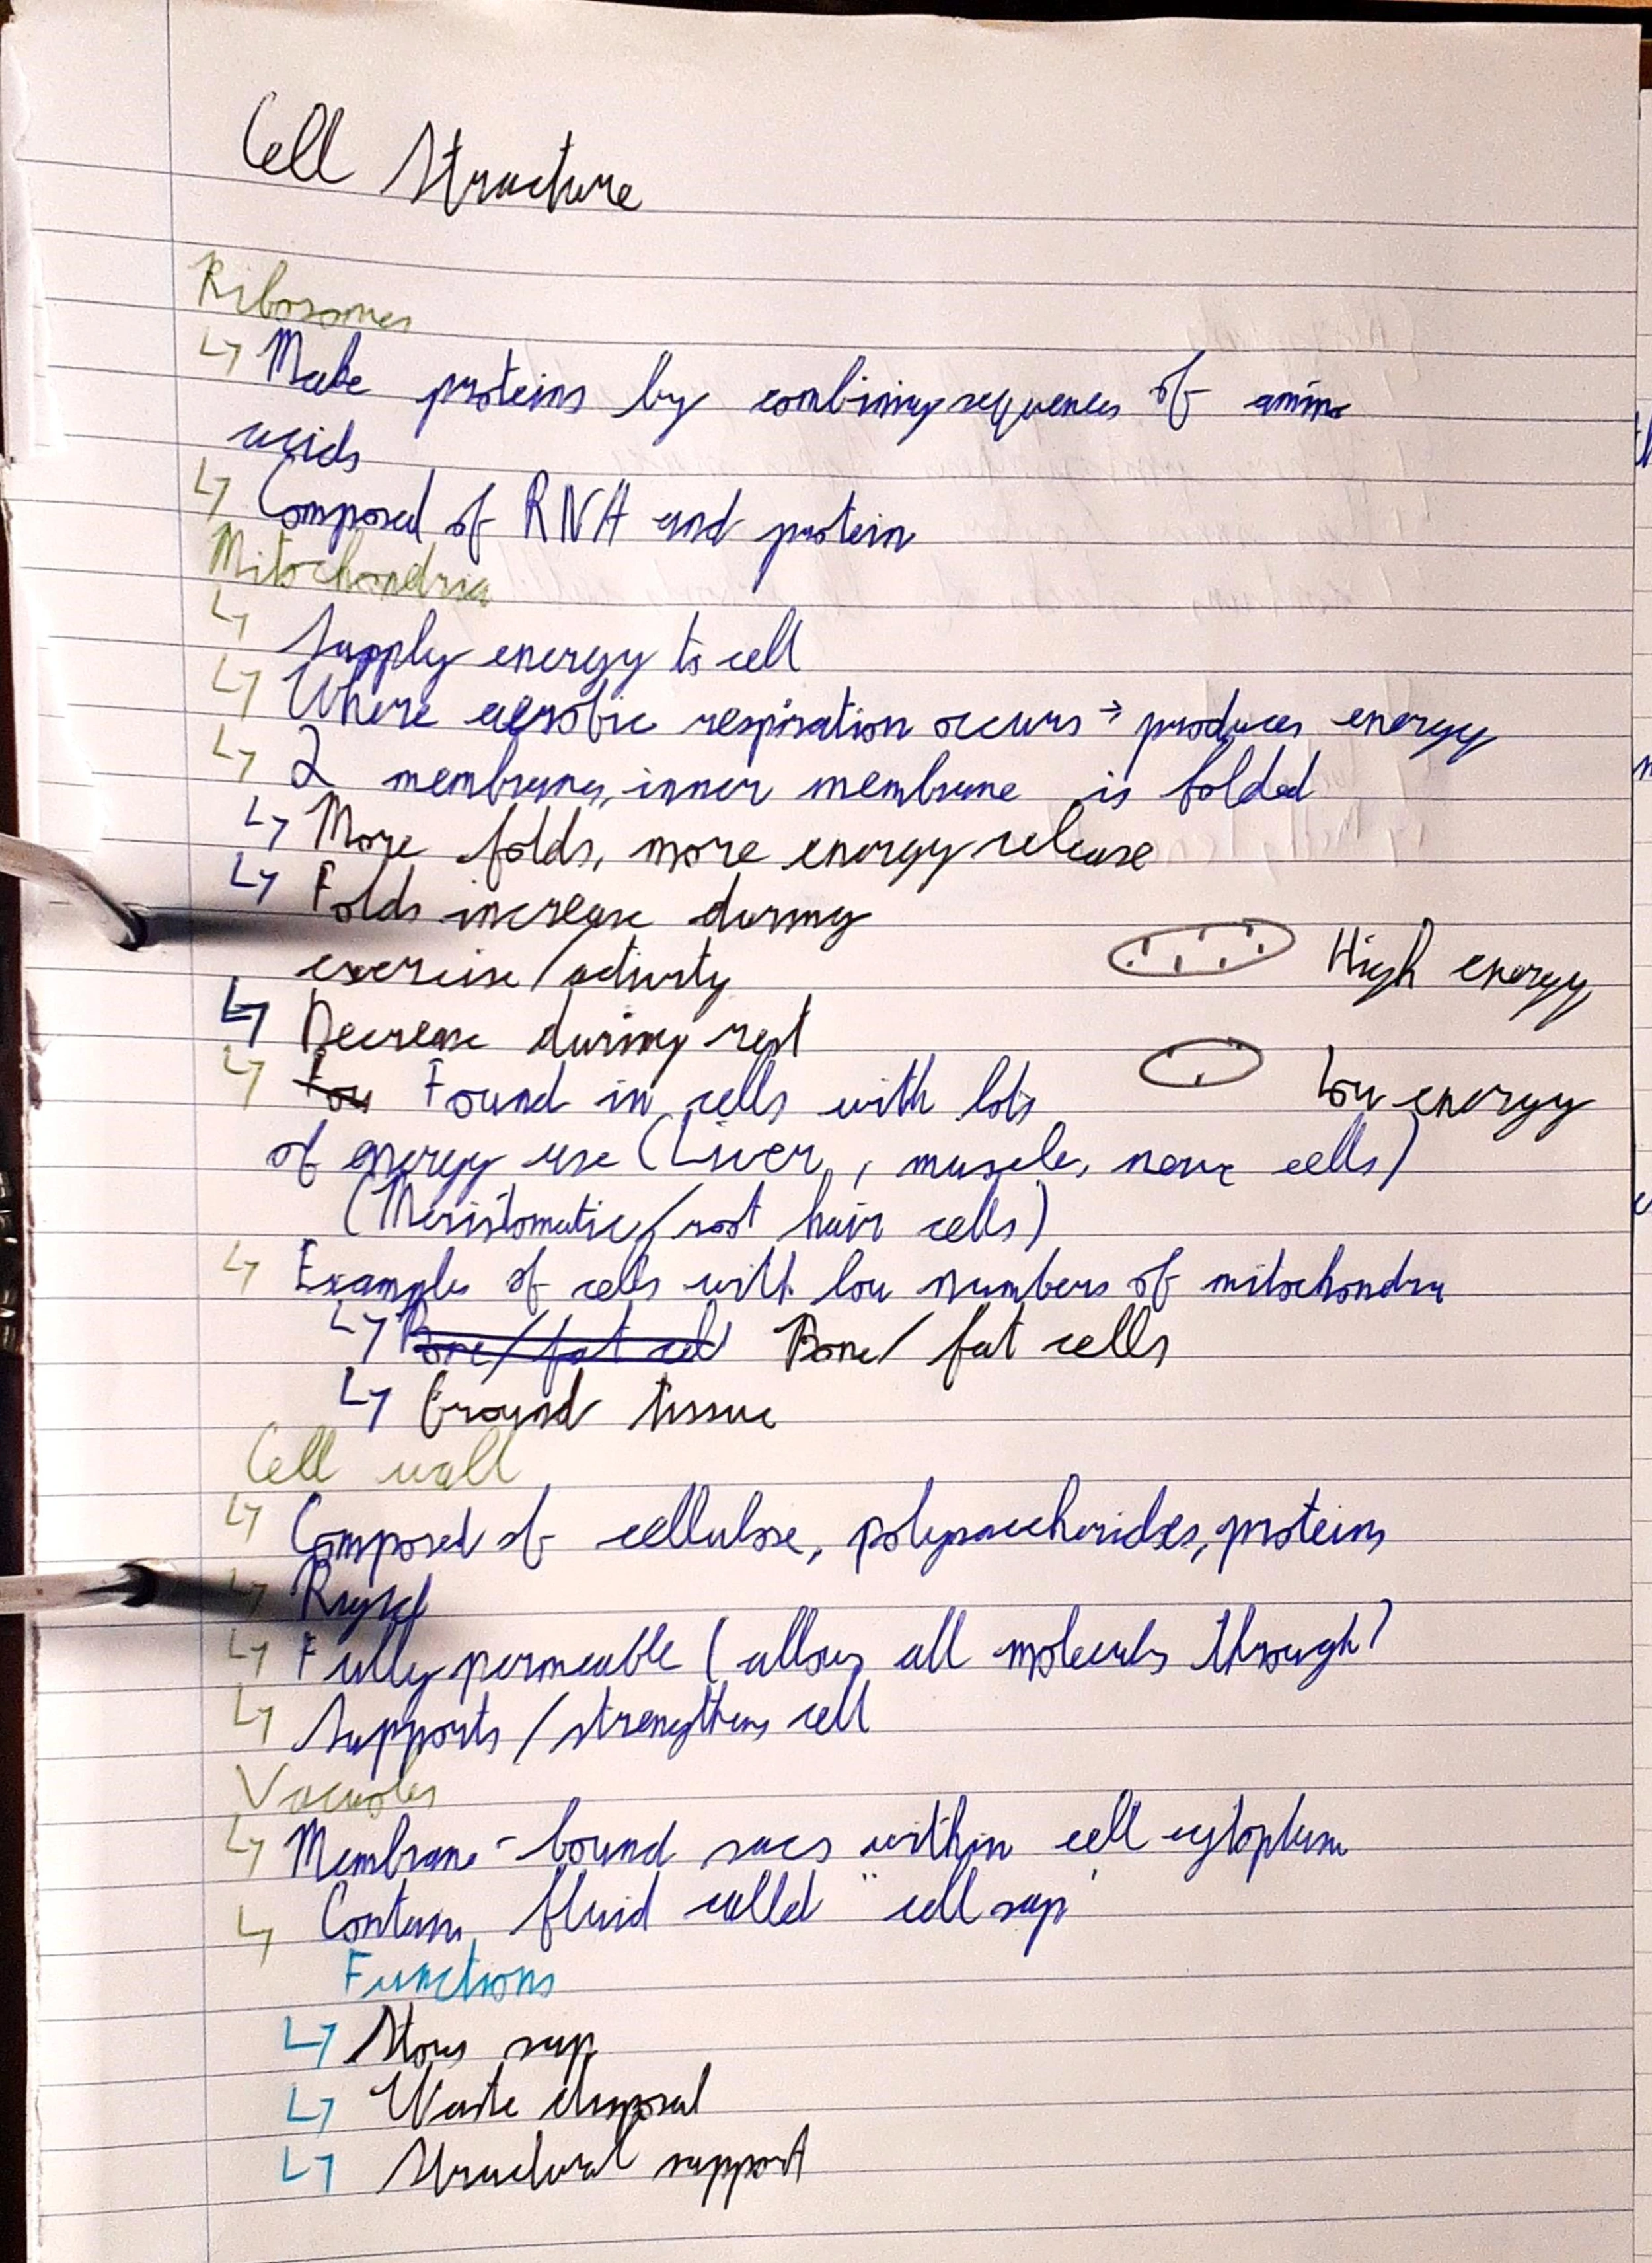 Cell Structure
Ribosomes
↳ Make proteins by combining sequences of amino
acids
↳ Composed of RNA and protein
Mitochondria
↳ Supply energy to cell
↳ Where aerobic respiration occurs → produces energy
↳ 2 membranes, inner membrane is folded
↳ More folds, more energy release
↳ Folds increase during
exercise/activity
High energy
↳ Decrease during rest
↳ Fou Found in cells with lots
Low energy
of energy use (Liver, muscle, nerve cells)
(Meristomatic/root hair cells)
↳ Examples of cells with low numbers of mitochondria
↳ Bone/fat cell Bone/fat cells
↳ Ground tissue
Cell wall
↳ Composed of cellulose, polysaccharides, proteins
↳ Rigid
↳ Fully permeable (allows all molecules through)
↳ Supports/strengthens cell
Vacuoles
↳ Membrane-bound sacs within cell cytoplasm
↳ Contains fluid called "cell sap"
Functions
↳ Stores sap
↳ Waste disposal
↳ Structural support